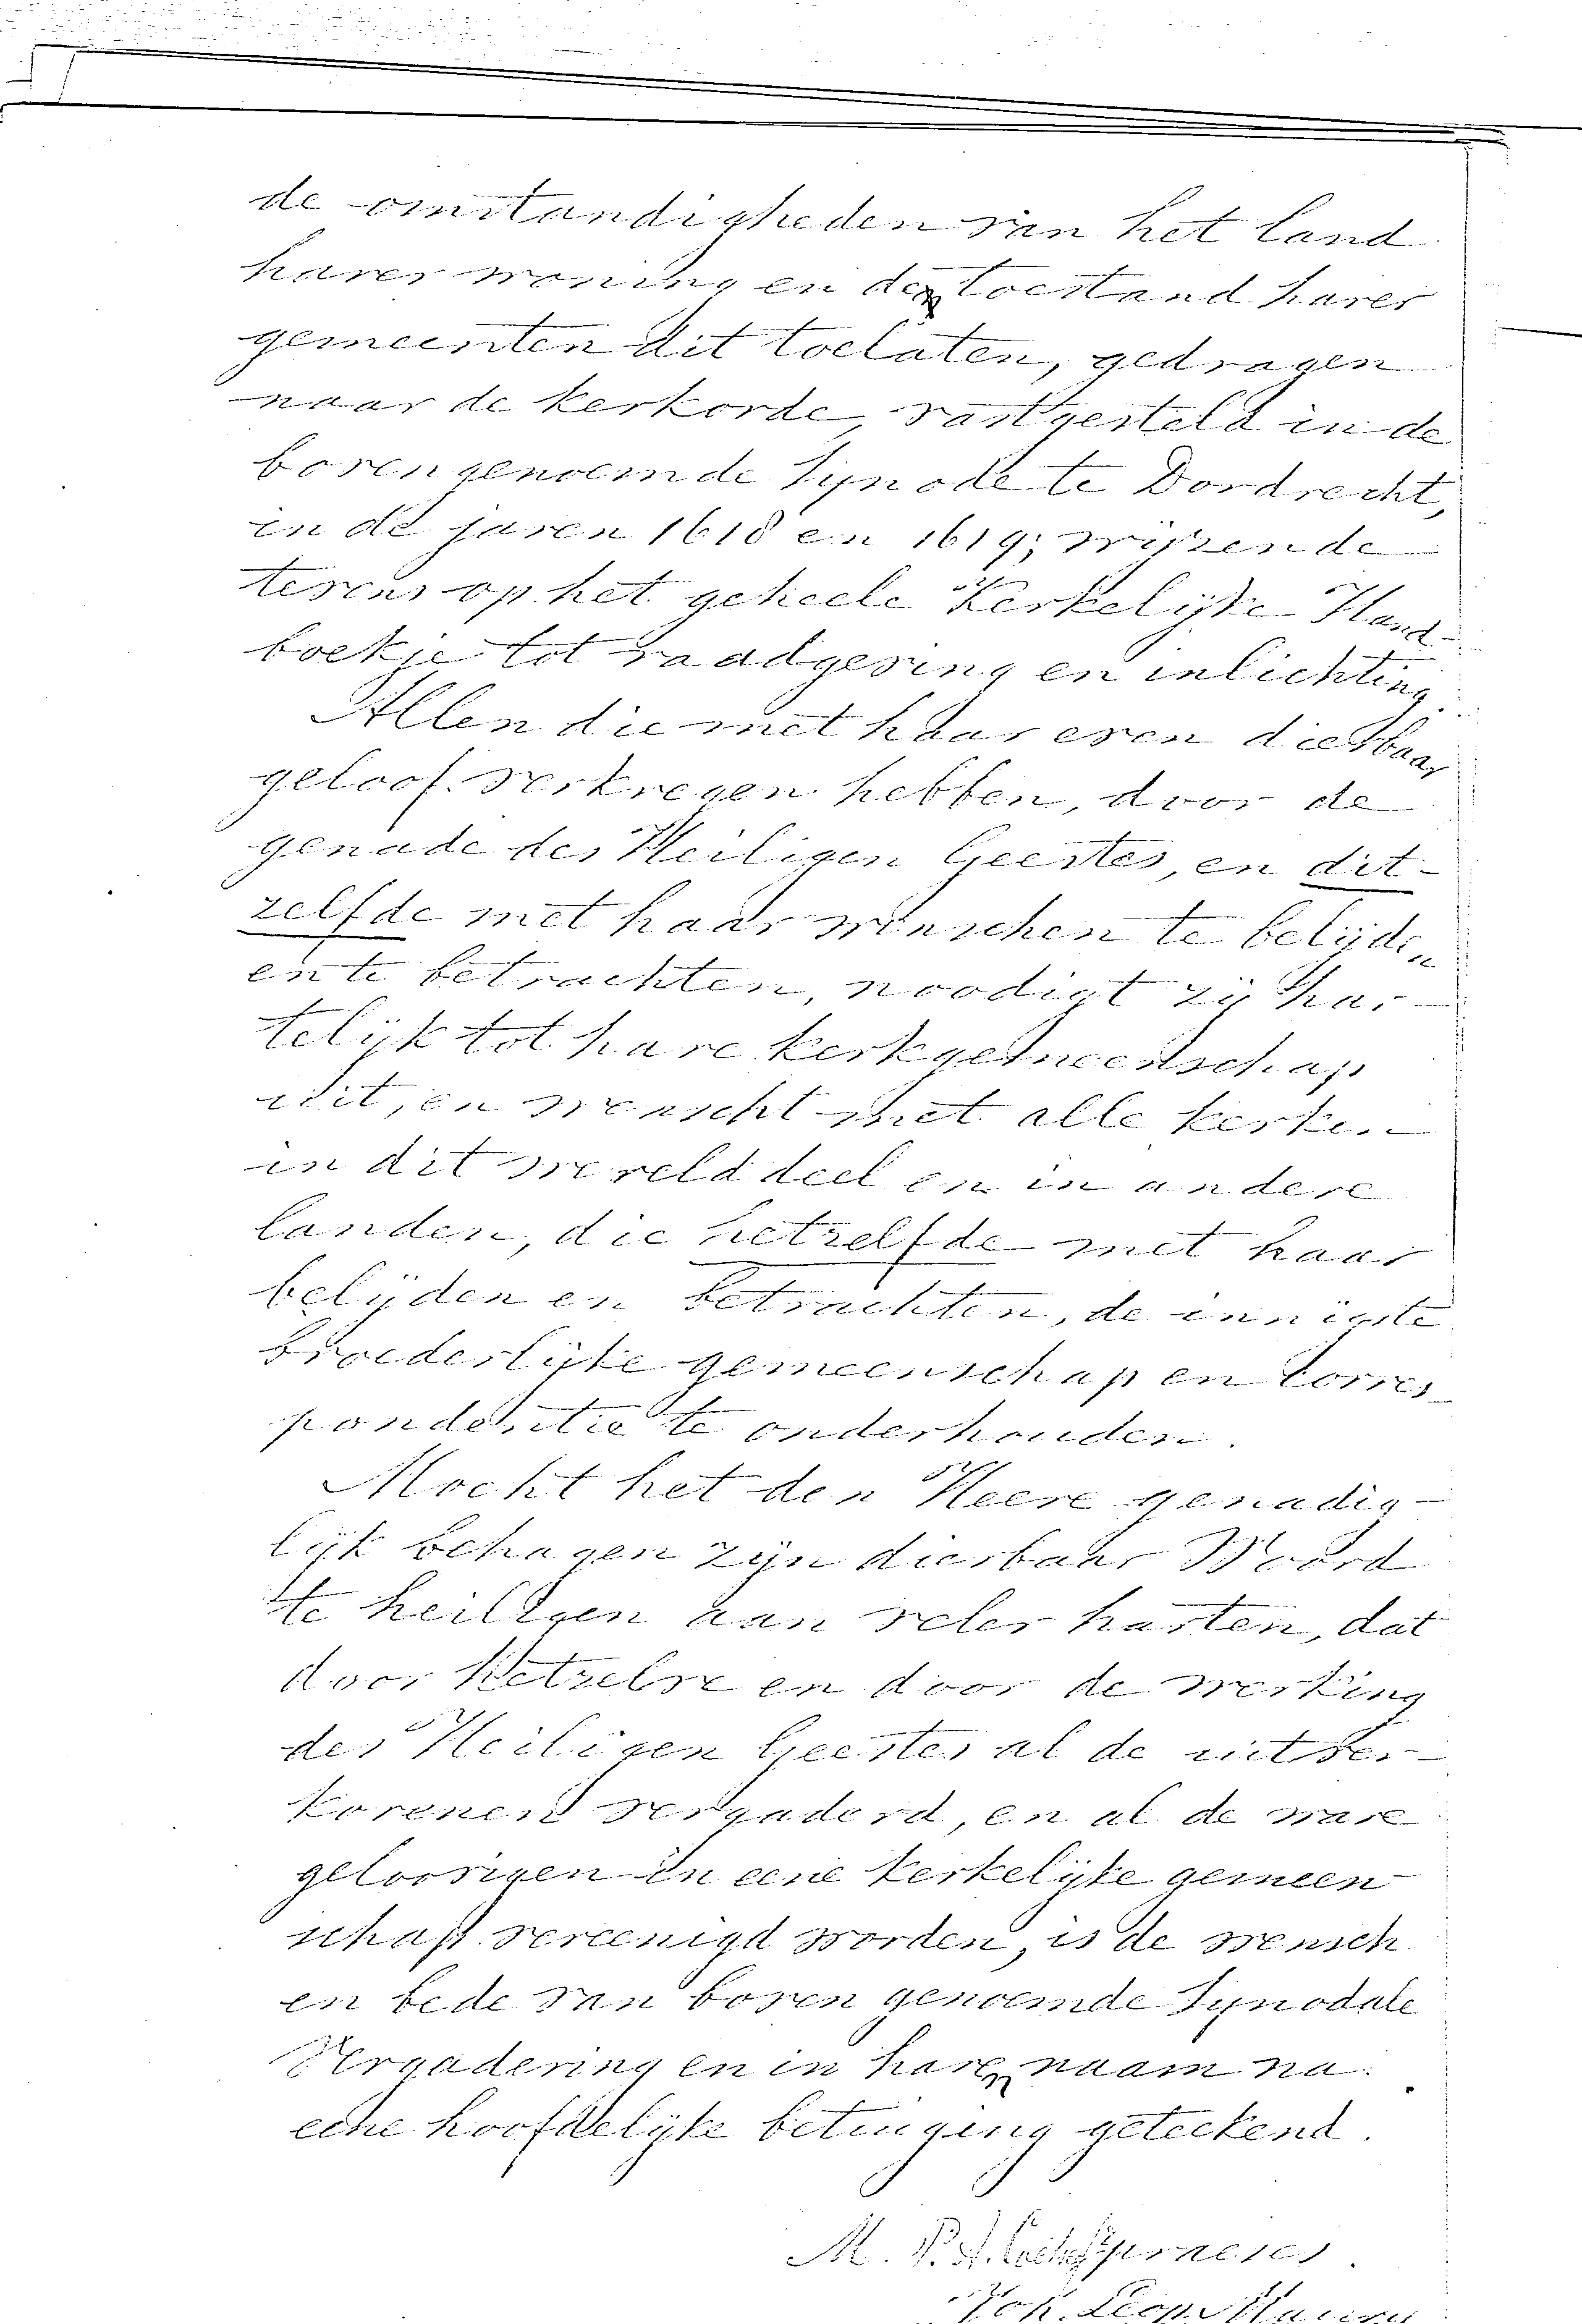 de omstandigheden van het land
harer woning en de toestand harer
gemeenten dit toelaten, gedragen
naar de Kerkorde, vastgesteld in de
bovengenoemde Synode te Dordrecht,
in de jaren 1618 en 1619; wijzende
tevens op het geheele Kerkelijke Hand-
boekje tot raadgeving en inlichting.
Allen die met haar even dierbaar
geloof verkregen hebben, door de
genade des Heiligen Geestes, en dit-
zelfde met haar wenschen te belijden
en te betrachten, noodigt zij har-
telijk tot hare kerkgemeenschap
uit, en wenscht met alle kerken
in dit werelddeel en in andere
landen, die hetzelfde met haar
belijden en betrachten, de innigste
broederlijke gemeenschap en corres-
pondentie te onderhouden.
Mocht het den Heere genadig-
lijk behagen zijn dierbaar Woord
te heiligen aan veler harten, dat
door hetzelve en door de werking
des Heiligen Geestes al de uitver-
korenen vergaderd, en al de ware
geloovigen in eene kerkelijke gemeen
schap vereenigd worden, is de wensch
en bede van boven genoemde Synodale
Vergadering en in hare naam na
eene hoofdelijke betuiging geteekend.
M. P. A. praeses.
Joh.